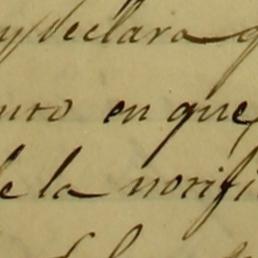 y declara q
uto en que
de la notifi